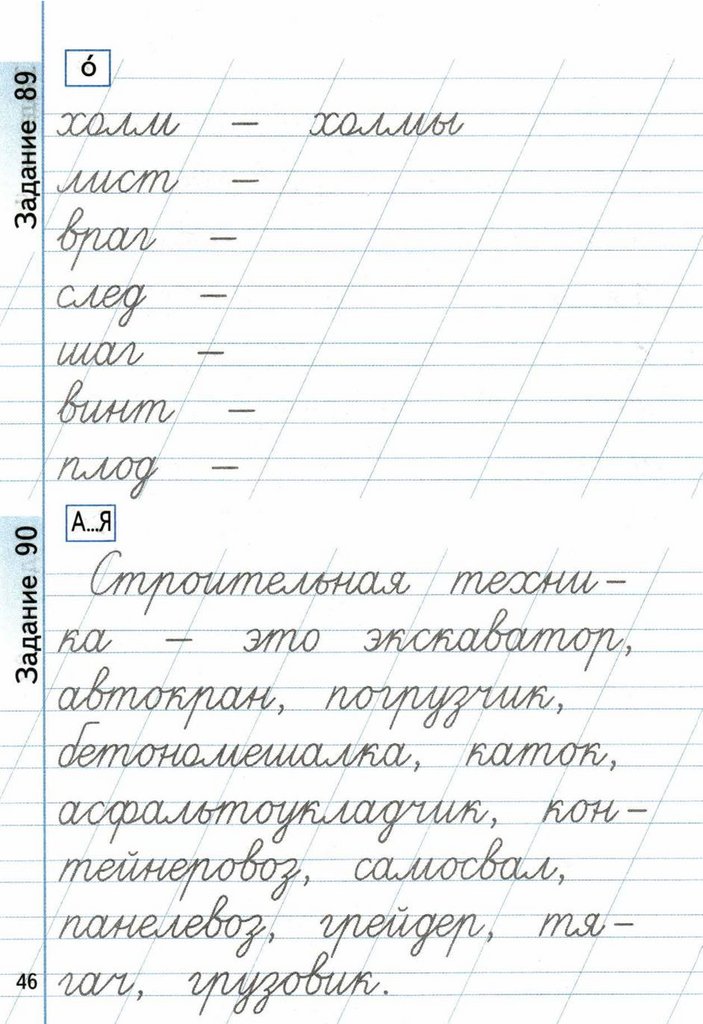 Задание 89
о́
холм – холмы
лист –
враг –
след –
шаг –
винт –
плод –
Задание 90
А...Я
Строительная техни-
ка – это экскаватор,
автокран, погрузчик,
бетономешалка, каток,
асфальтоукладчик, кон-
тейнеровоз, самосвал,
панелевоз, грейдер, тя-
гач, грузовик.
46